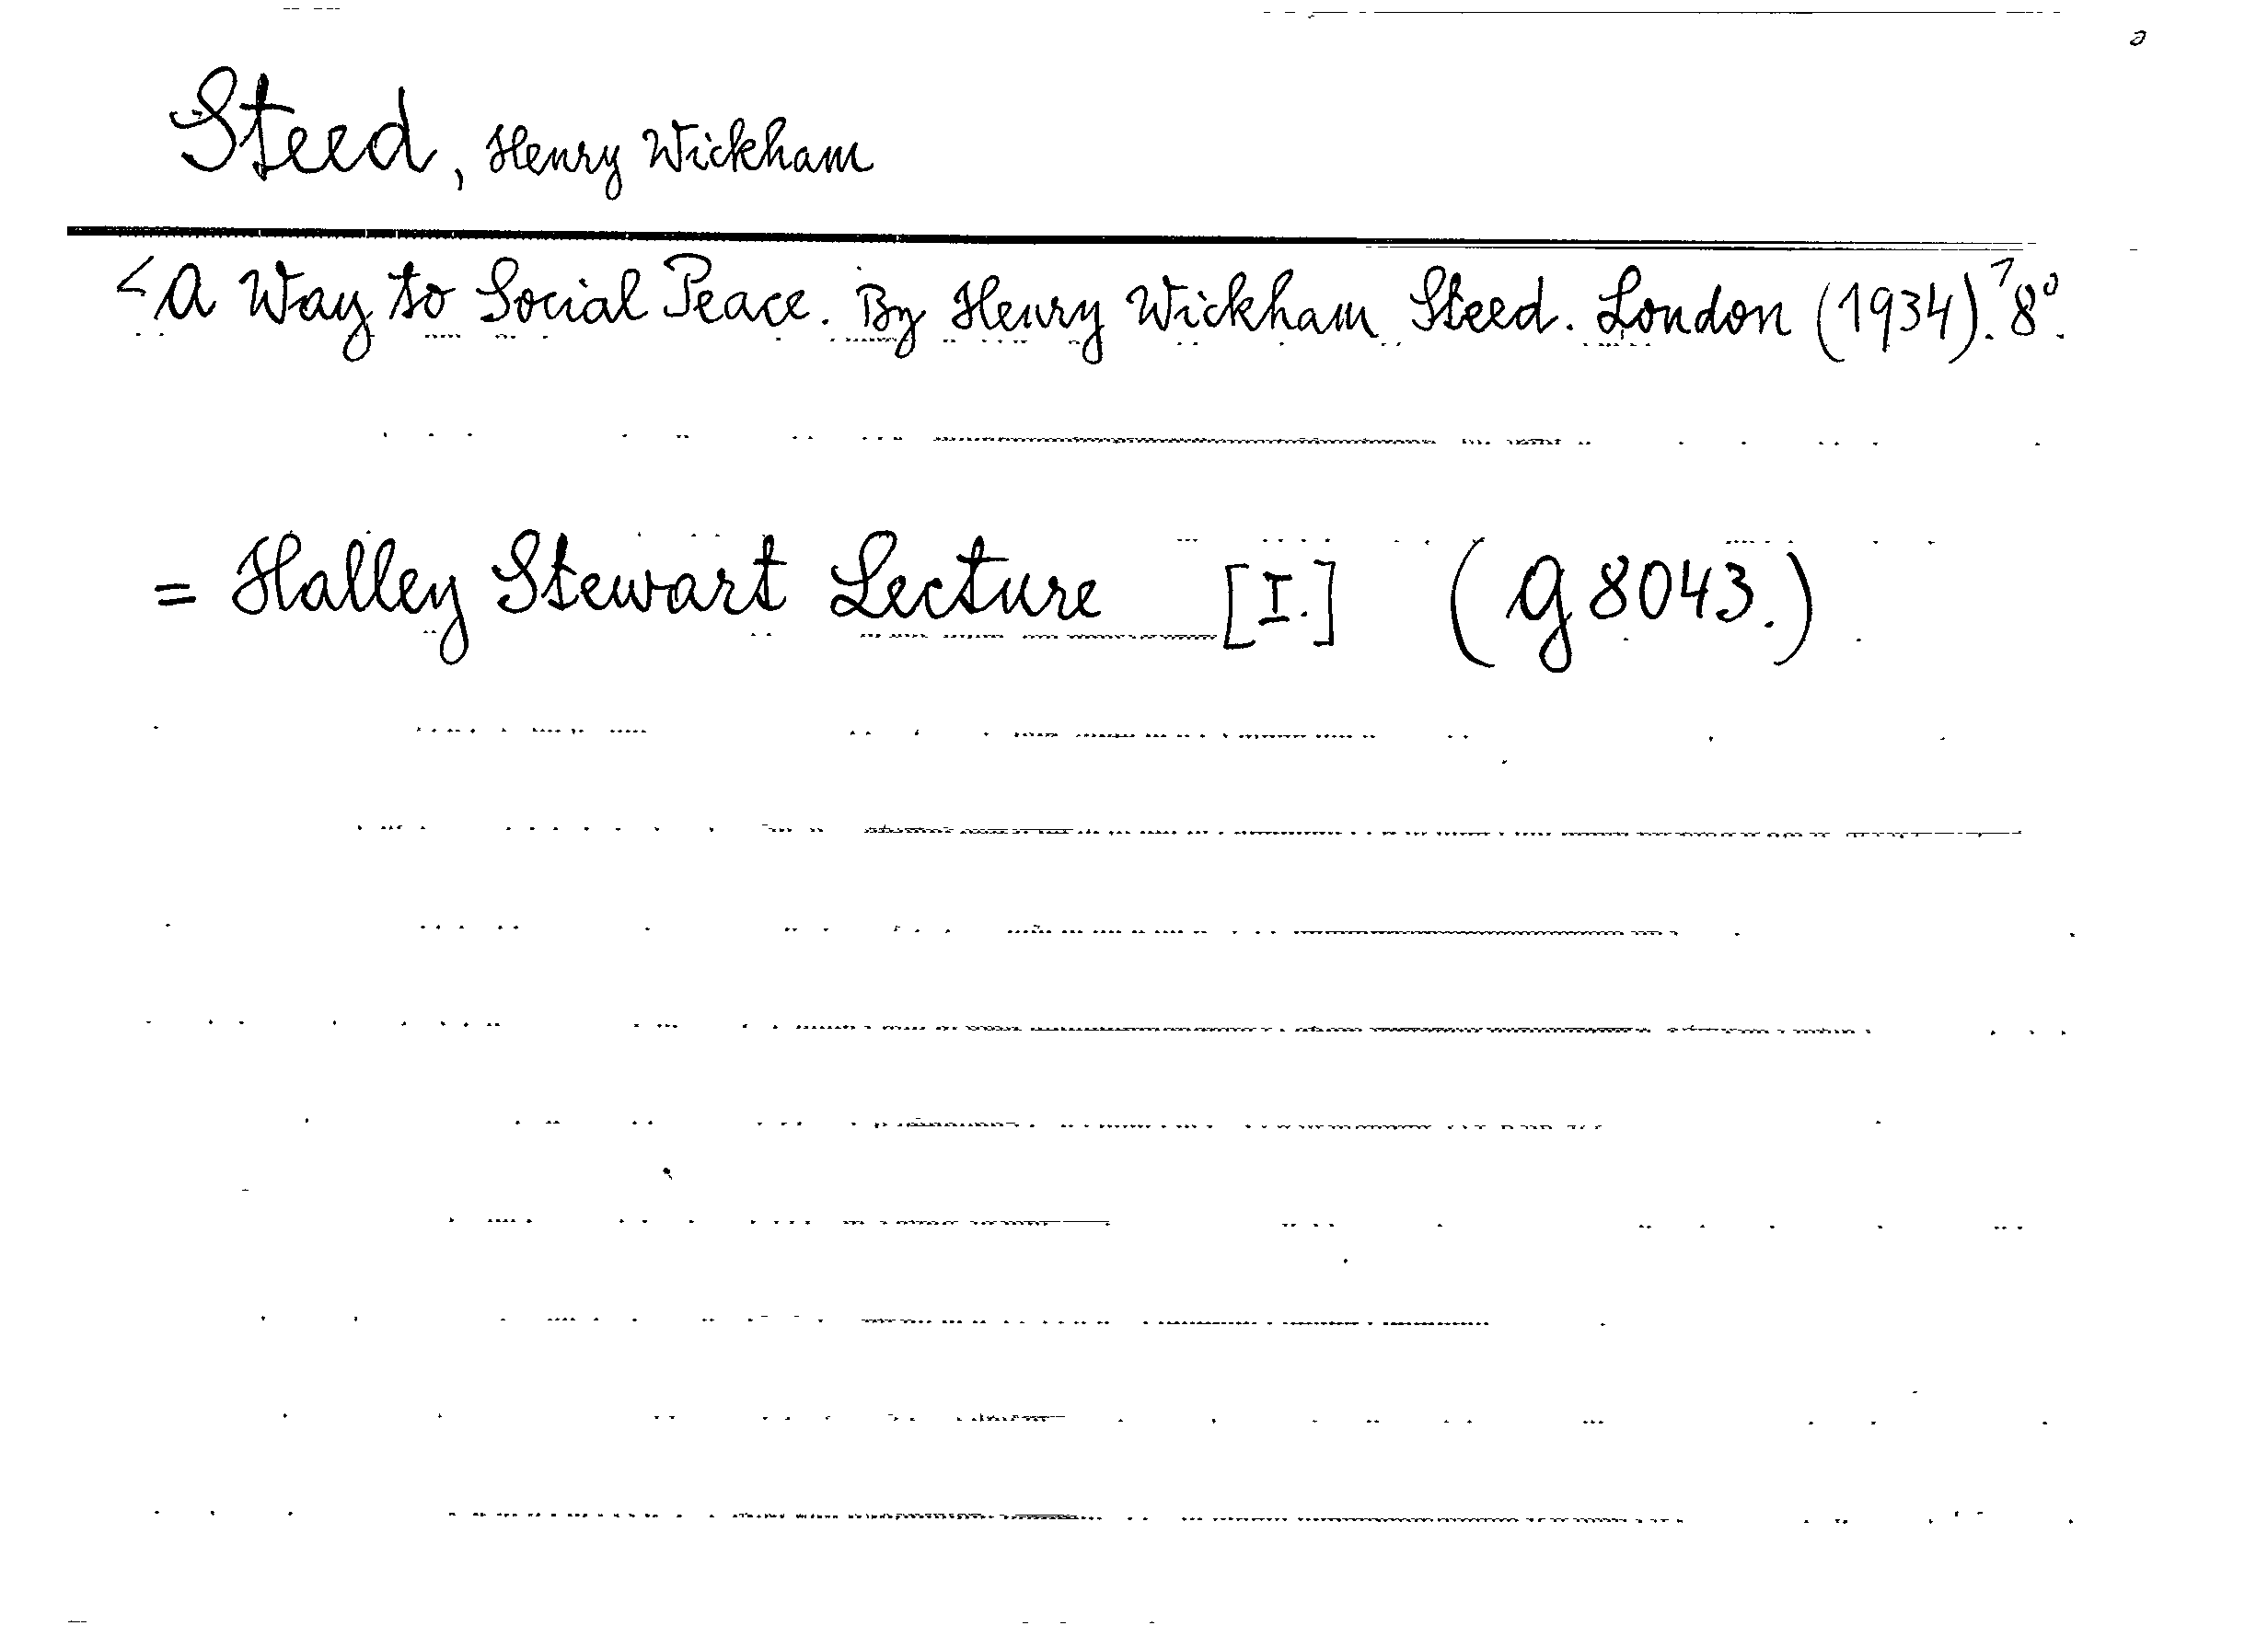 Steed, Henry Wickham
<A Way to Social Peace. By Henry Wickham Steed. London (1934).> 8°.
= Halley Stewart Lecture [I.] (g 8043.)